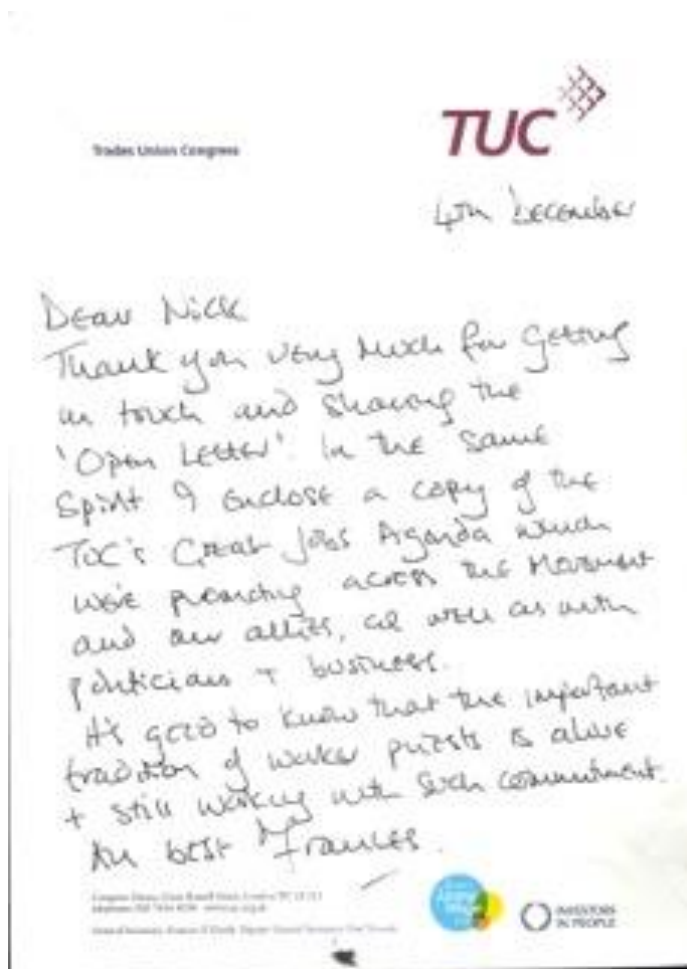 Trades Union Congress
TUC
4th December
Dear Nick
Thank you very much for getting
in touch and sharing the
'Open Letter'. In the same
Spirit I enclose a copy of the
TUC's Great Jobs Agenda which
we're promoting across the Movement
and our allies, as well as with
politicians + business.
It's good to know that the important
tradition of worker priests is alive
+ still working with such commitment.
All best Frances.
INVESTORS
IN PEOPLE